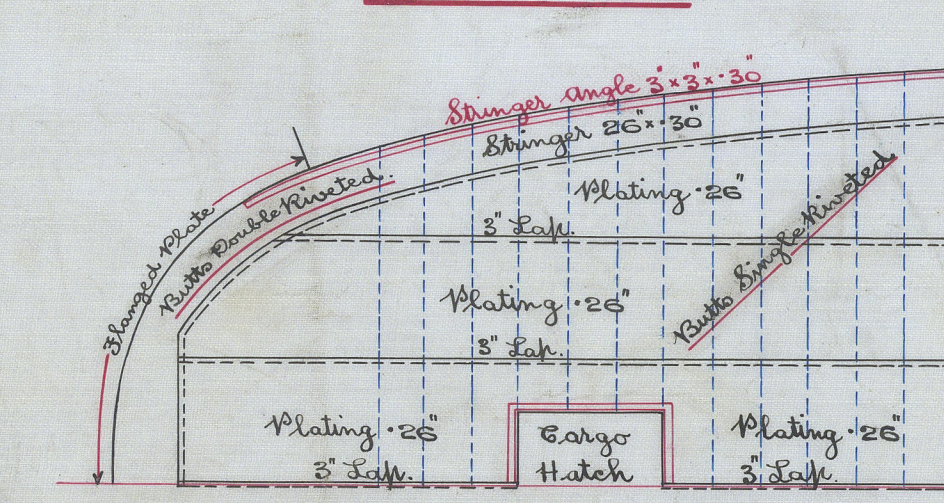 Stringer angle 3"×3"×·30"
Stringer 26"×·30"
Plating ·26"
3" Lap.
Flanged Plate
Butts Double Riveted.
Butts Single Riveted
Plating ·26"
3" Lap.
Plating ·26"
3" Lap.
Cargo
Hatch
Plating ·26"
3" Lap.